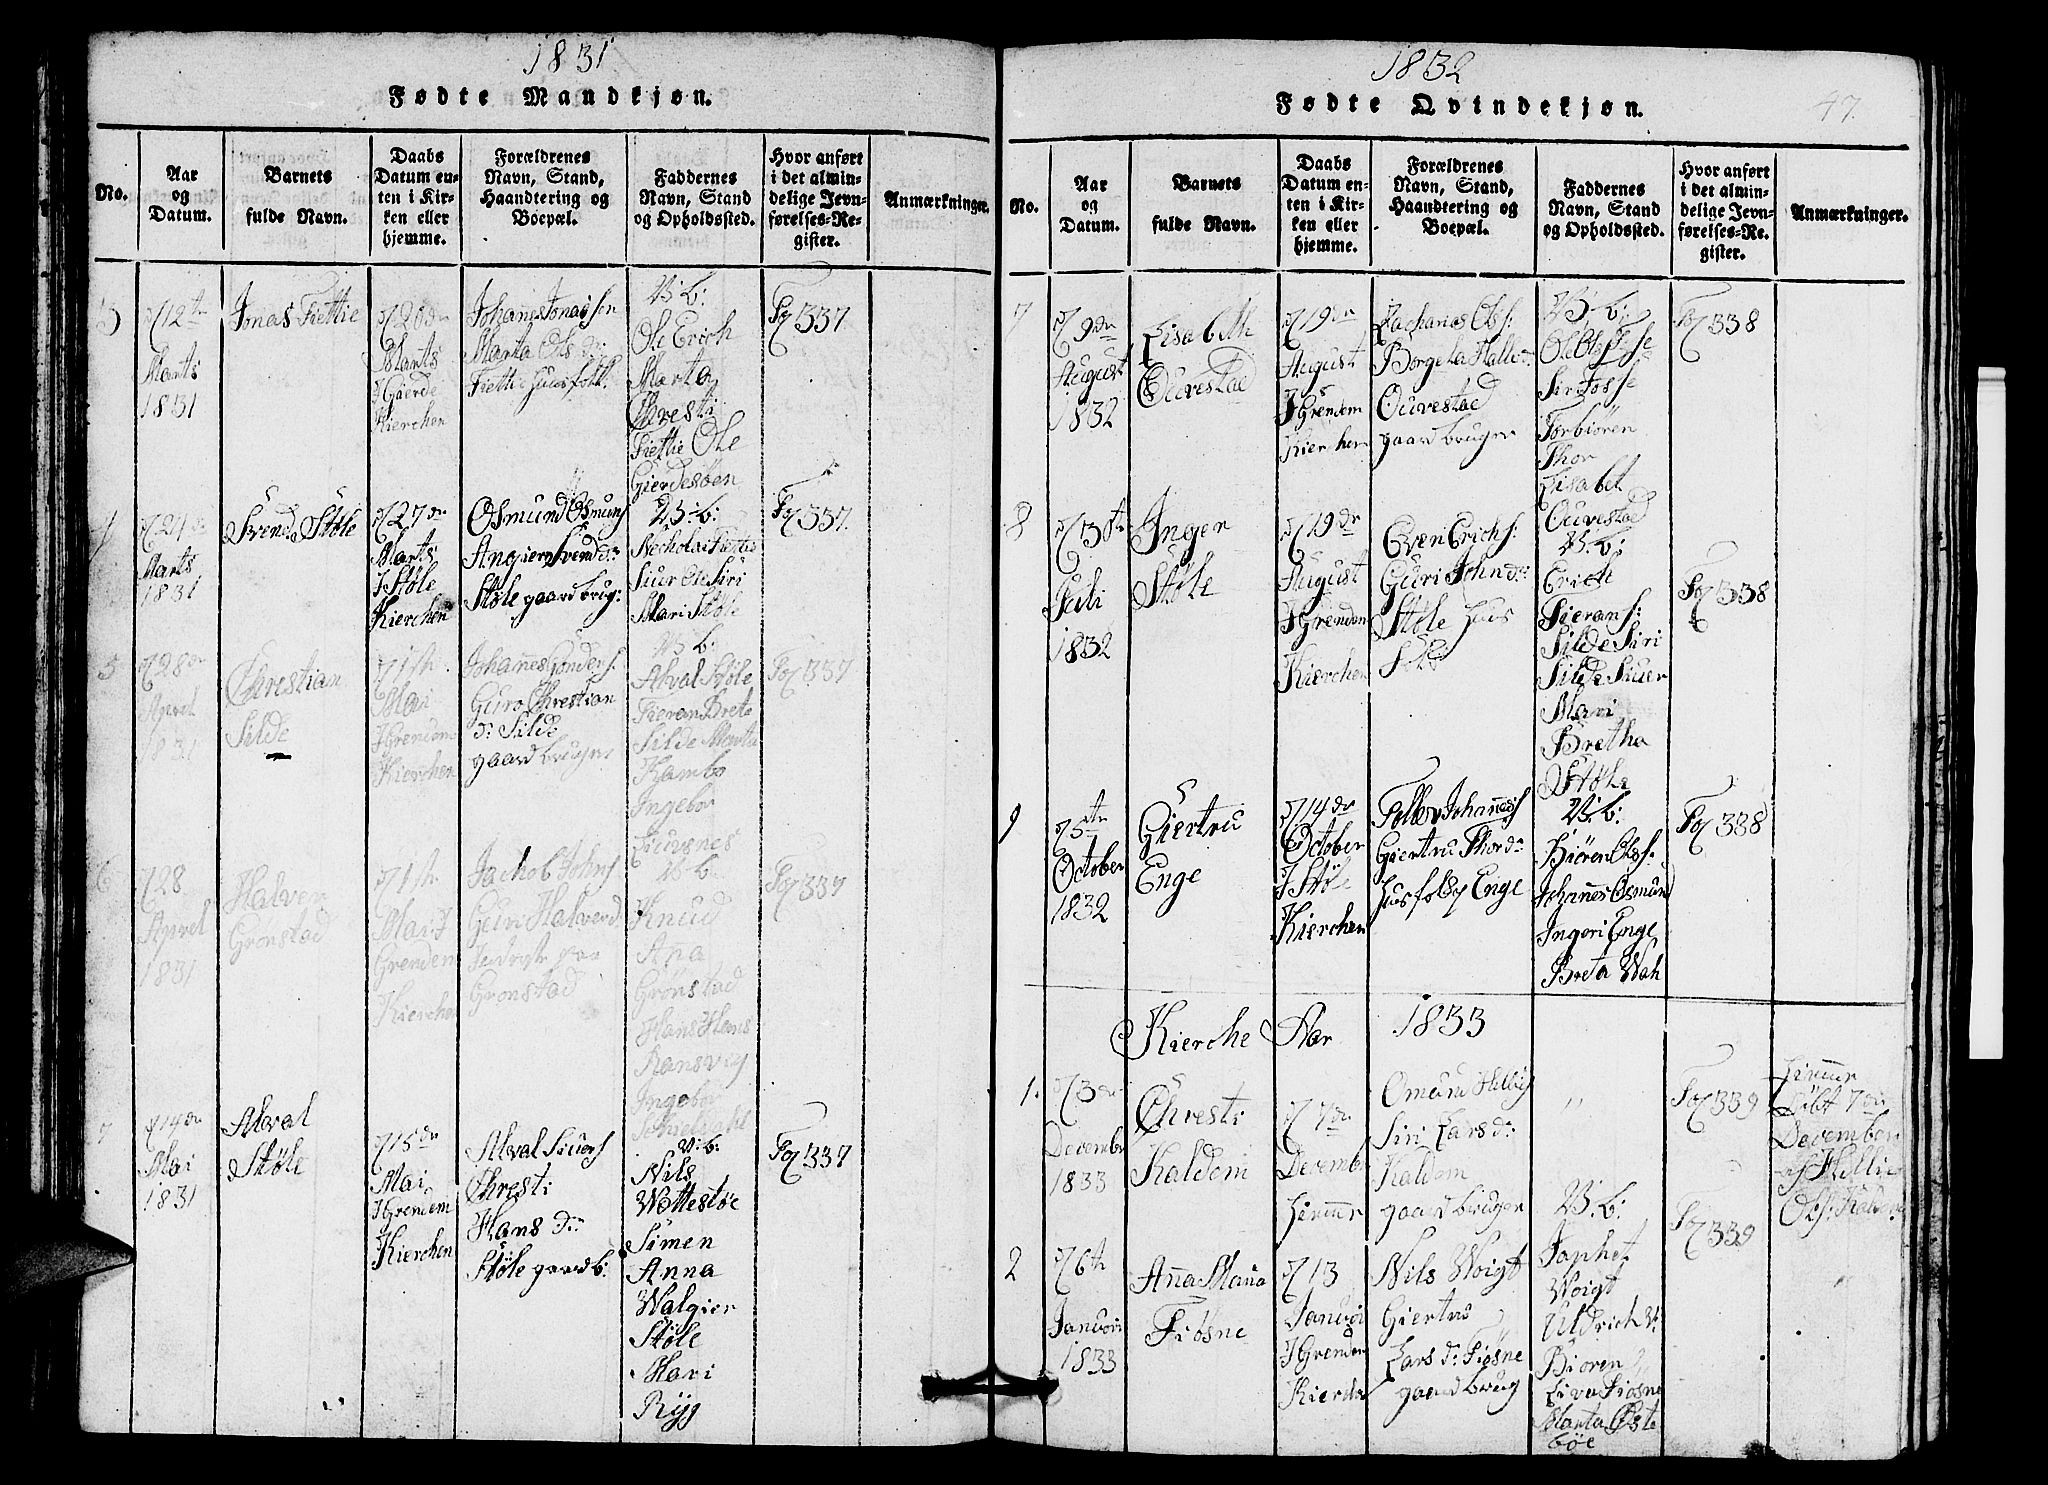 1831
Fødte Mandkjøn.
No.
Aar
og
Datum.
Barnets
fulde Navn.
Daabs
Datum en-
ten i Kir-
ken eller
hjemme.
Forældrenes
Navn, Stand,
Haandtering og
Boepæl.
Faddernes
Navn, Stand
og Opholdssted.
Hvor anført
i det almin-
delige Jevn-
førelses-Re-
gister.
Anmærkninger.
3
12te
Marts
1831
Jonas Fiettie
20de
Marts
I Gierde
Kierchen
Johanes Jonassen
Marta Ols dr:
Fiettie huusfolk.
V: b:
Ole Erich
Marta
Chresti
Fiettie Ole
Gierdesøen
Fol 337
4
24de
Marts
1831
Svend Støle
27de
Marts
I Støle
Kierchen
Osmund Osmuns
Angiern Svend d:
Støle gaard brug:
V: b:
Necholai Fiettie
Siur Ole Siri
Mari Støle
Fol 337.
5
28de
Aprel
1831
Chrestian
Silde
1ste
Mai
I Grendem
Kierchen
Johanes Gunders:
Guro Chrestian
d: Silde
gaard bruger
V: b:
Atval Støle
Sieran Breta
Silde Marta
Kambo
Ingebor
Liusnes
Fol 337
6
28
Aprel
1831
Halver
Gronstad
1ste
Mai I
Grendem
Kierchen
Jachob Johns
Guri Halverd
Inderste paa
Gronstad
V: b:
Knud
Ana
Grønstad
Hans Hans
Ransvig
Ingebor
Fol 337
7
14de
Mai
1831
Atval
Støle
15de
Mai
I Grendem
Kierchen
Atval Siuers
Chresti
Hans dr:
Støle gaardb:
V: b:
Nils
Wattestøe
Simen
Anna
Walgier
Støle
Mari
Rygg
Fol 337
1832
Fødte Qvindekjøn.
47.
No.
Aar
og
Datum.
Barnets
fulde Navn.
Daabs
Datum en-
ten i Kir-
ken eller
hjemme.
Forældrenes
Navn, Stand,
Haandtering og
Boepæl.
Faddernes
Navn, Stand
og Opholdssted.
Hvor anført
i det almin-
delige Jevn-
førelses-Re-
gister.
Anmærkninger.
7
9de
August
1832
Lisabeth
Ouvestad
19de
August
I Grendem
Kierchen
Zacharias Ols:
Borgela Halle
Ouvestad
gaard bruger
V: b:
Ole Ols Fosse
Siri Fosse
Torbiören
Thor
Lisabet
Ouvestad
Fol 338
8
30te
Juli
1832
Inger
Støle
19de
August
I Grendem
Kierchen
Even Erichs:
Guri John d:
Støle huus
folk
V: b:
Erich
Sierans:
Silde Siri
Silde Siuer
Mari
Bretha
Støle
Fol 338
9
5te
October
1832
Giertru
Enge
14de
October
I Støle
Kierchen
Johannes
Giertru Thord:
Enge
V: b:
Biören Ols:
Johannes Osmund
Ingeri Enge
Breta Wah
Fol 338
Kierche Aar 1833
1.
3de
December
1833
Chresti
Kaldem
7de
December
hiemme
Omund Hellis
Siri Lars d:
Kaldem
gaard bruger
"
Fol 339
hiemme
Døbt 7de
December
af Hellie
Ols: Kaldem
2
6te
Januari
1833
Anna Maria
Fiøsne
13
Januari
I Grendem
Kierche
Nils Woigt
Giertru
Lars d: Fiøsne
gaard brug
V: b:
Japhet
Woigt
Uldrich W:
Bioren
Liva Fiosne
Marta Øste
bøe
Fol 339